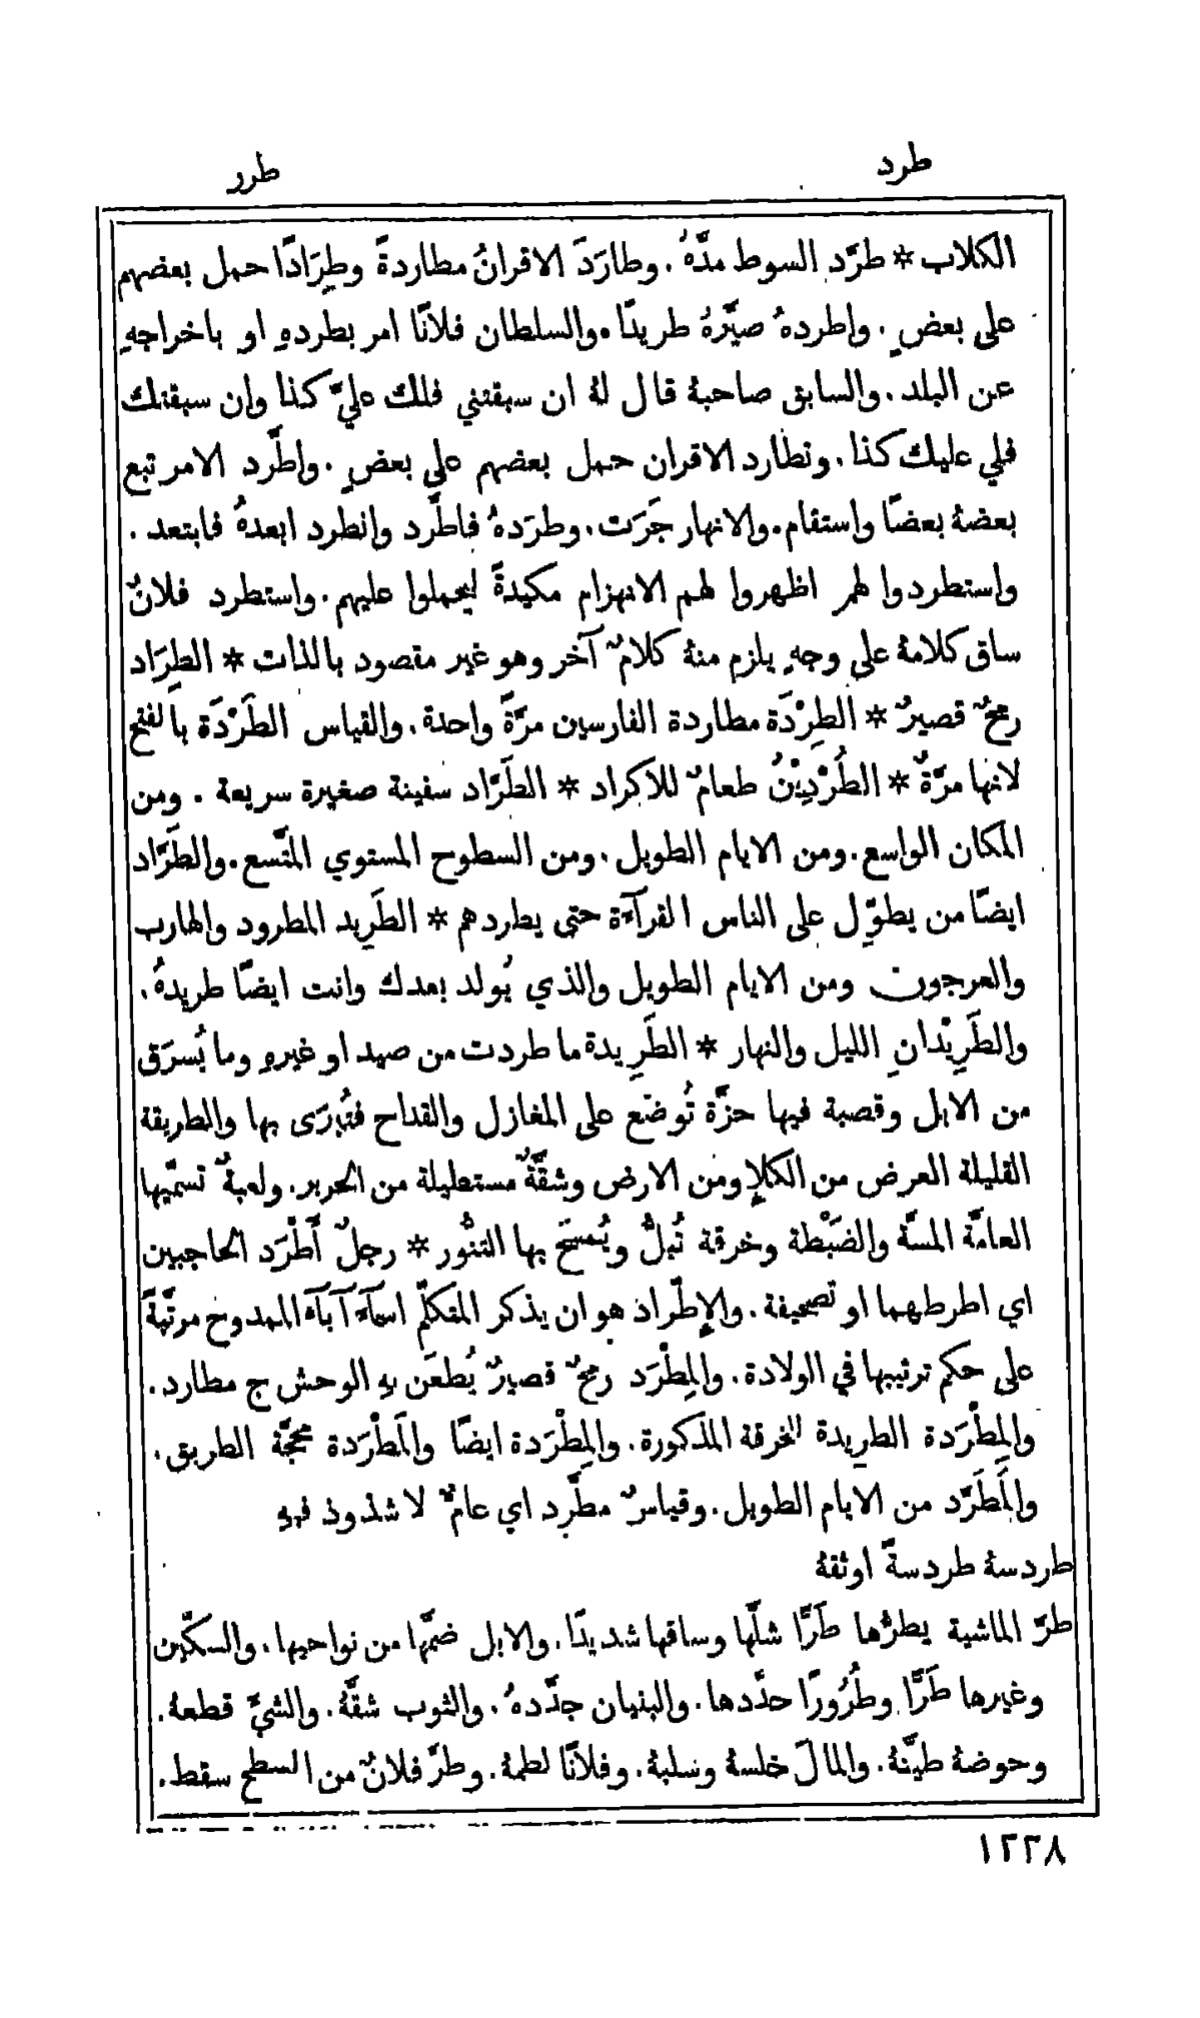 طرد
طرر
الكلاب * طرَّد السوط مدَّهُ. وطارَدَ الاقرانُ مطاردةً وطِرَادًا حمل بعضهم
على بعضٍ. واطردهُ صيَّرهُ طريدًا. والسلطان فلانًا امر بطردهِ او باخراجهِ
عن البلد. والسابق صاحبهُ قال لهُ ان سبقتني فلك عليَّ كذا وان سبقتك
فلي عليك كذا. وتطارد الاقران حمل بعضهم على بعضٍ. واطَّرد الامر تبع
بعضهُ بعضًا واستقام. والانهار جَرَت. وطرَدهُ فاطَّرد وانطرد ابعدهُ فابتعد.
واستطردوا لهم اظهروا لهم الانهزام مكيدةً ليحملوا عليهم. واستطرد فلانٌ
ساق كلامهُ على وجهٍ يلزم منهُ كلامٌ آخر وهو غير مقصود بالذات * الطِرَاد
رمحٌ قصيرٌ * الطِرْدَة مطاردة الفارسين مرَّةً واحدة. والقياس الطَرْدَة بالفتح
لانها مرَّةٌ * الطُرْدِيْنُ طعامٌ للاكراد * الطَرَّاد سفينة صغيرة سريعة. ومن
المكان الواسع. ومن الايام الطويل. ومن السطوح المستوي المتَّسع. والطَرَّاد
ايضًا من يطوِّل على الناس القرآءة حتى يطردهم * الطَرِيد المطرود والهارب
والعرجون ومن الايام الطويل والذي يُولد بعدك وانت ايضًا طريدهُ.
والطَرِيْدانِ الليل والنهار * الطَرِيدة ما طردت من صيد او غيرهِ وما يُسرَق
من الابل وقصبة فيها حزَّة تُوضَع على المغازل والقداح فتُبرَى بها والطريقة
القليلة العرض من الكلاءِ ومن الارض وشقَّةٌ مستطيلة من الحرير. ولعبةٌ تسمّيها
العامَّة المسَّة والضَبْطة وخرقة تُبلُّ ويُمسَح بها التنُّور * رجلٌ أَطْرَد الحاجبين
اي اطرطهما او تصحيفة. والإِطّراد هو ان يذكر المتكلّم اسمآءَ آبآءَ الممدوح مرتَّبةً
على حكم ترتيبها في الولادة. والمِطْرَد رمحٌ قصيرٌ يُطعَن بهِ الوحش ج مطارد.
والمِطْرَدة الطريدة للخرقة المذكورة. والمِطْرَدة ايضًا والمَطْرَدة محجَّة الطريق.
والمَطَرَّد من الايام الطويل. وقياسٌ مطَّرِد اي عامٌّ لا شذوذ فيهِ
طردسهُ طردسةً اوثقهُ
طرَّ الماشية يطرُّها طَرًّا شلَّها وساقها شديدًا. والابل ضمَّها من نواحيها. والسكّين
وغيرها طَرًّا وطُرُورًا حدَّدها. والبنيان جدَّدهُ. والثوب شقَّهُ. والشيَّ قطعهُ.
وحوضهُ طيَّنهُ. والمالَ خلسهُ وسلبهُ. وفلانًا لطمهُ. وطرَّ فلانٌ من السطح سقط.
١٢٣٨